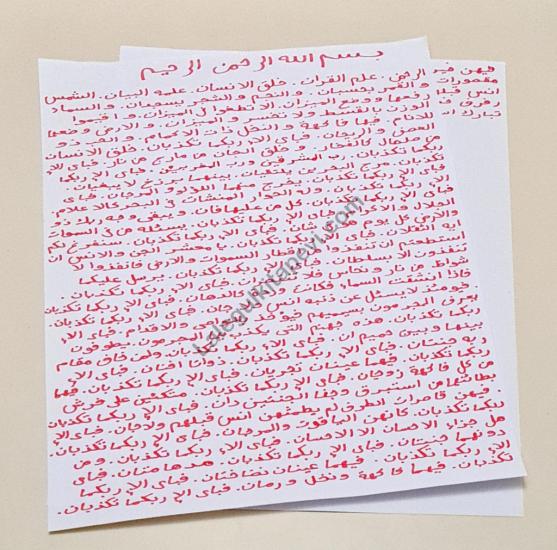 بسم الله الرحمن الرحيم
الرحمن . علم القران . خلق الانسان . علمه البيان . الشمس
و القمر بحسبان . و النجم و الشجر يسجدان . و السماء
رفعها ووضع الميزان . الا تطغوا في الميزان . و اقيموا
الوزن بالقسط ولا تخسروا الميزان . و الارض وضعها
للانام . فيها فاكهة و النخل ذات الاكمام . و الحب ذو
العصف و الريحان . فباى الاء ربكما تكذبان . خلق الانسان
صلصال كالفخار . و خلق الجان من مارج من نار . فباى الاء
ربكما تكذبان . رب المشرقين ورب المغربين . فباى الاء ربكما
تكذبان . مرج البحرين يلتقيان . بينهما برزخ لا يبغيان .
الاء ربكما تكذبان . يخرج منهما اللالو و المرجان . فباى
الاء ربكما تكذبان . وله الجوار المنشات في البحر كالاعلام .
فباى الاء ربكما تكذبان . كل من عليها فان . ويبقى وجه ربك ذو
الجلال والاكرام . فباى الاء ربكما تكذبان . يسئله من في السموات
والارض كل يوم هو في شان . فباى الاء ربكما تكذبان . سنفرغ لكم
ايه الثقلان . فباى الاء ربكما تكذبان . يا معشر الجن والانس ان
استطعتم ان تنفذوا من اقطار السموات والارض فانفذوا لا
تنفذون الا بسلطان . فباى الاء ربكما تكذبان . يرسل عليكما
شواظ من نار ونحاس فلا تنتصران . فباى الاء ربكما تكذبان .
فاذا انشقت السماء فكانت وردة كالدهان . فباى الاء ربكما تكذبان
فيومئذ لا يسئل عن ذنبه انس ولا جان . فباى الاء ربكما تكذبان .
يعرف المجرمون بسيميهم فيؤخذ بالنواصى والاقدام . فباى الاء
ربكما تكذبان . هذه جهنم التى يكذب بها المجرمون . يطوفون
بينها وبين حميم ان . فباى الاء ربكما تكذبان . ولمن خاف مقام
ربه جنتان . فباى الاء ربكما تكذبان . ذواتا افنان . فباى الاء
ربكما تكذبان . فيهما عينان تجريان . فباى الاء ربكما تكذبان . فيهما
من كل فاكهة زوجان . فباى الاء ربكما تكذبان . متكئين على فرش
بطائنها من استبرق وجنا الجنتين دان . فباى الاء ربكما تكذبان
. فيهن قاصرات الطرف لم يطمثهن انس قبلهم ولا جان . فباى الاء
ربكما تكذبان . كانهن الياقوت والمرجان . فباى الاء ربكما تكذبان .
هل جزاء الاحسان الا الاحسان . فباى الاء ربكما تكذبان . ومن
دونهما جنتان . فباى الاء ربكما تكذبان . مدهامتان . فباى
الاء ربكما تكذبان . فيهما عينان نضاختان . فباى الاء ربكما
تكذبان . فيهما فاكهة ونخل و رمان . فباى الاء ربكما تكذبان .
Lalegulkitapevi.com